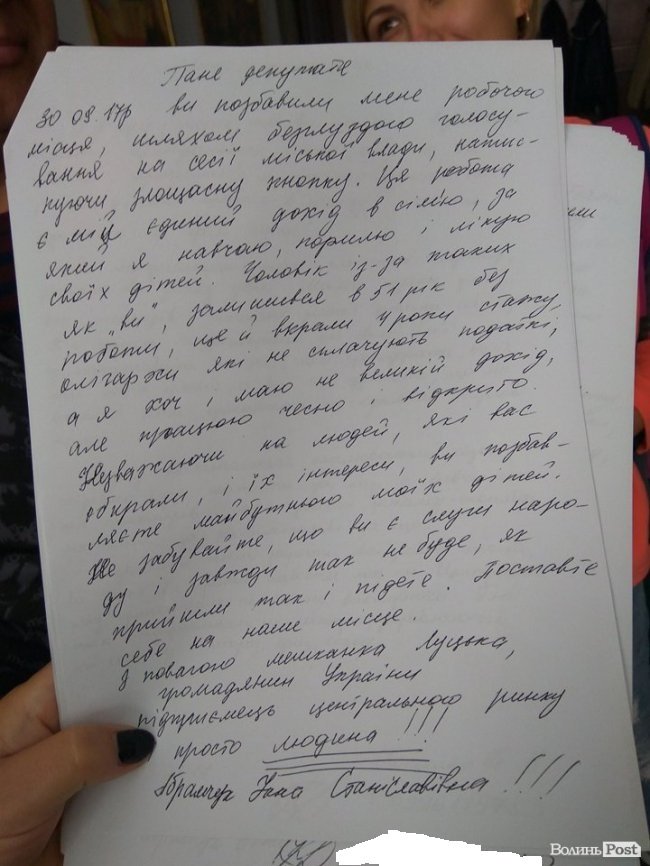 Пане депутате
30 09.17р ви позбавили мене робочого
місця, шляхом безглуздого голосу-
вання на сесії міської влади, натис-
нуючи злощасну кнопку. Ця робота
є мій єдиний дохід в сім'ю, за
який я навчаю, кормлю і лікую
своїх дітей. Чоловік із-за таких
як "ви", залишився в 51 рік без
роботи, ще й вкрали 4 роки стажу,
олігархи які не сплачують податки,
а я хоч і маю не великий дохід,
але працюю чесно і відкрито.
Незважаючи на людей, які вас
обирали, і їх інтереси, ви позбав-
ляєте майбутнього моїх дітей.
Не забувайте, що ви є слуги наро-
ду і завжди так не буде, як
прийшли так і підете. Поставте
себе на наше місце.
З повагою мешканка Луцька,
громадянин України
підприємець центрального ринку
просто людина !!!!
Станіславівна !!!
ВолиньPost